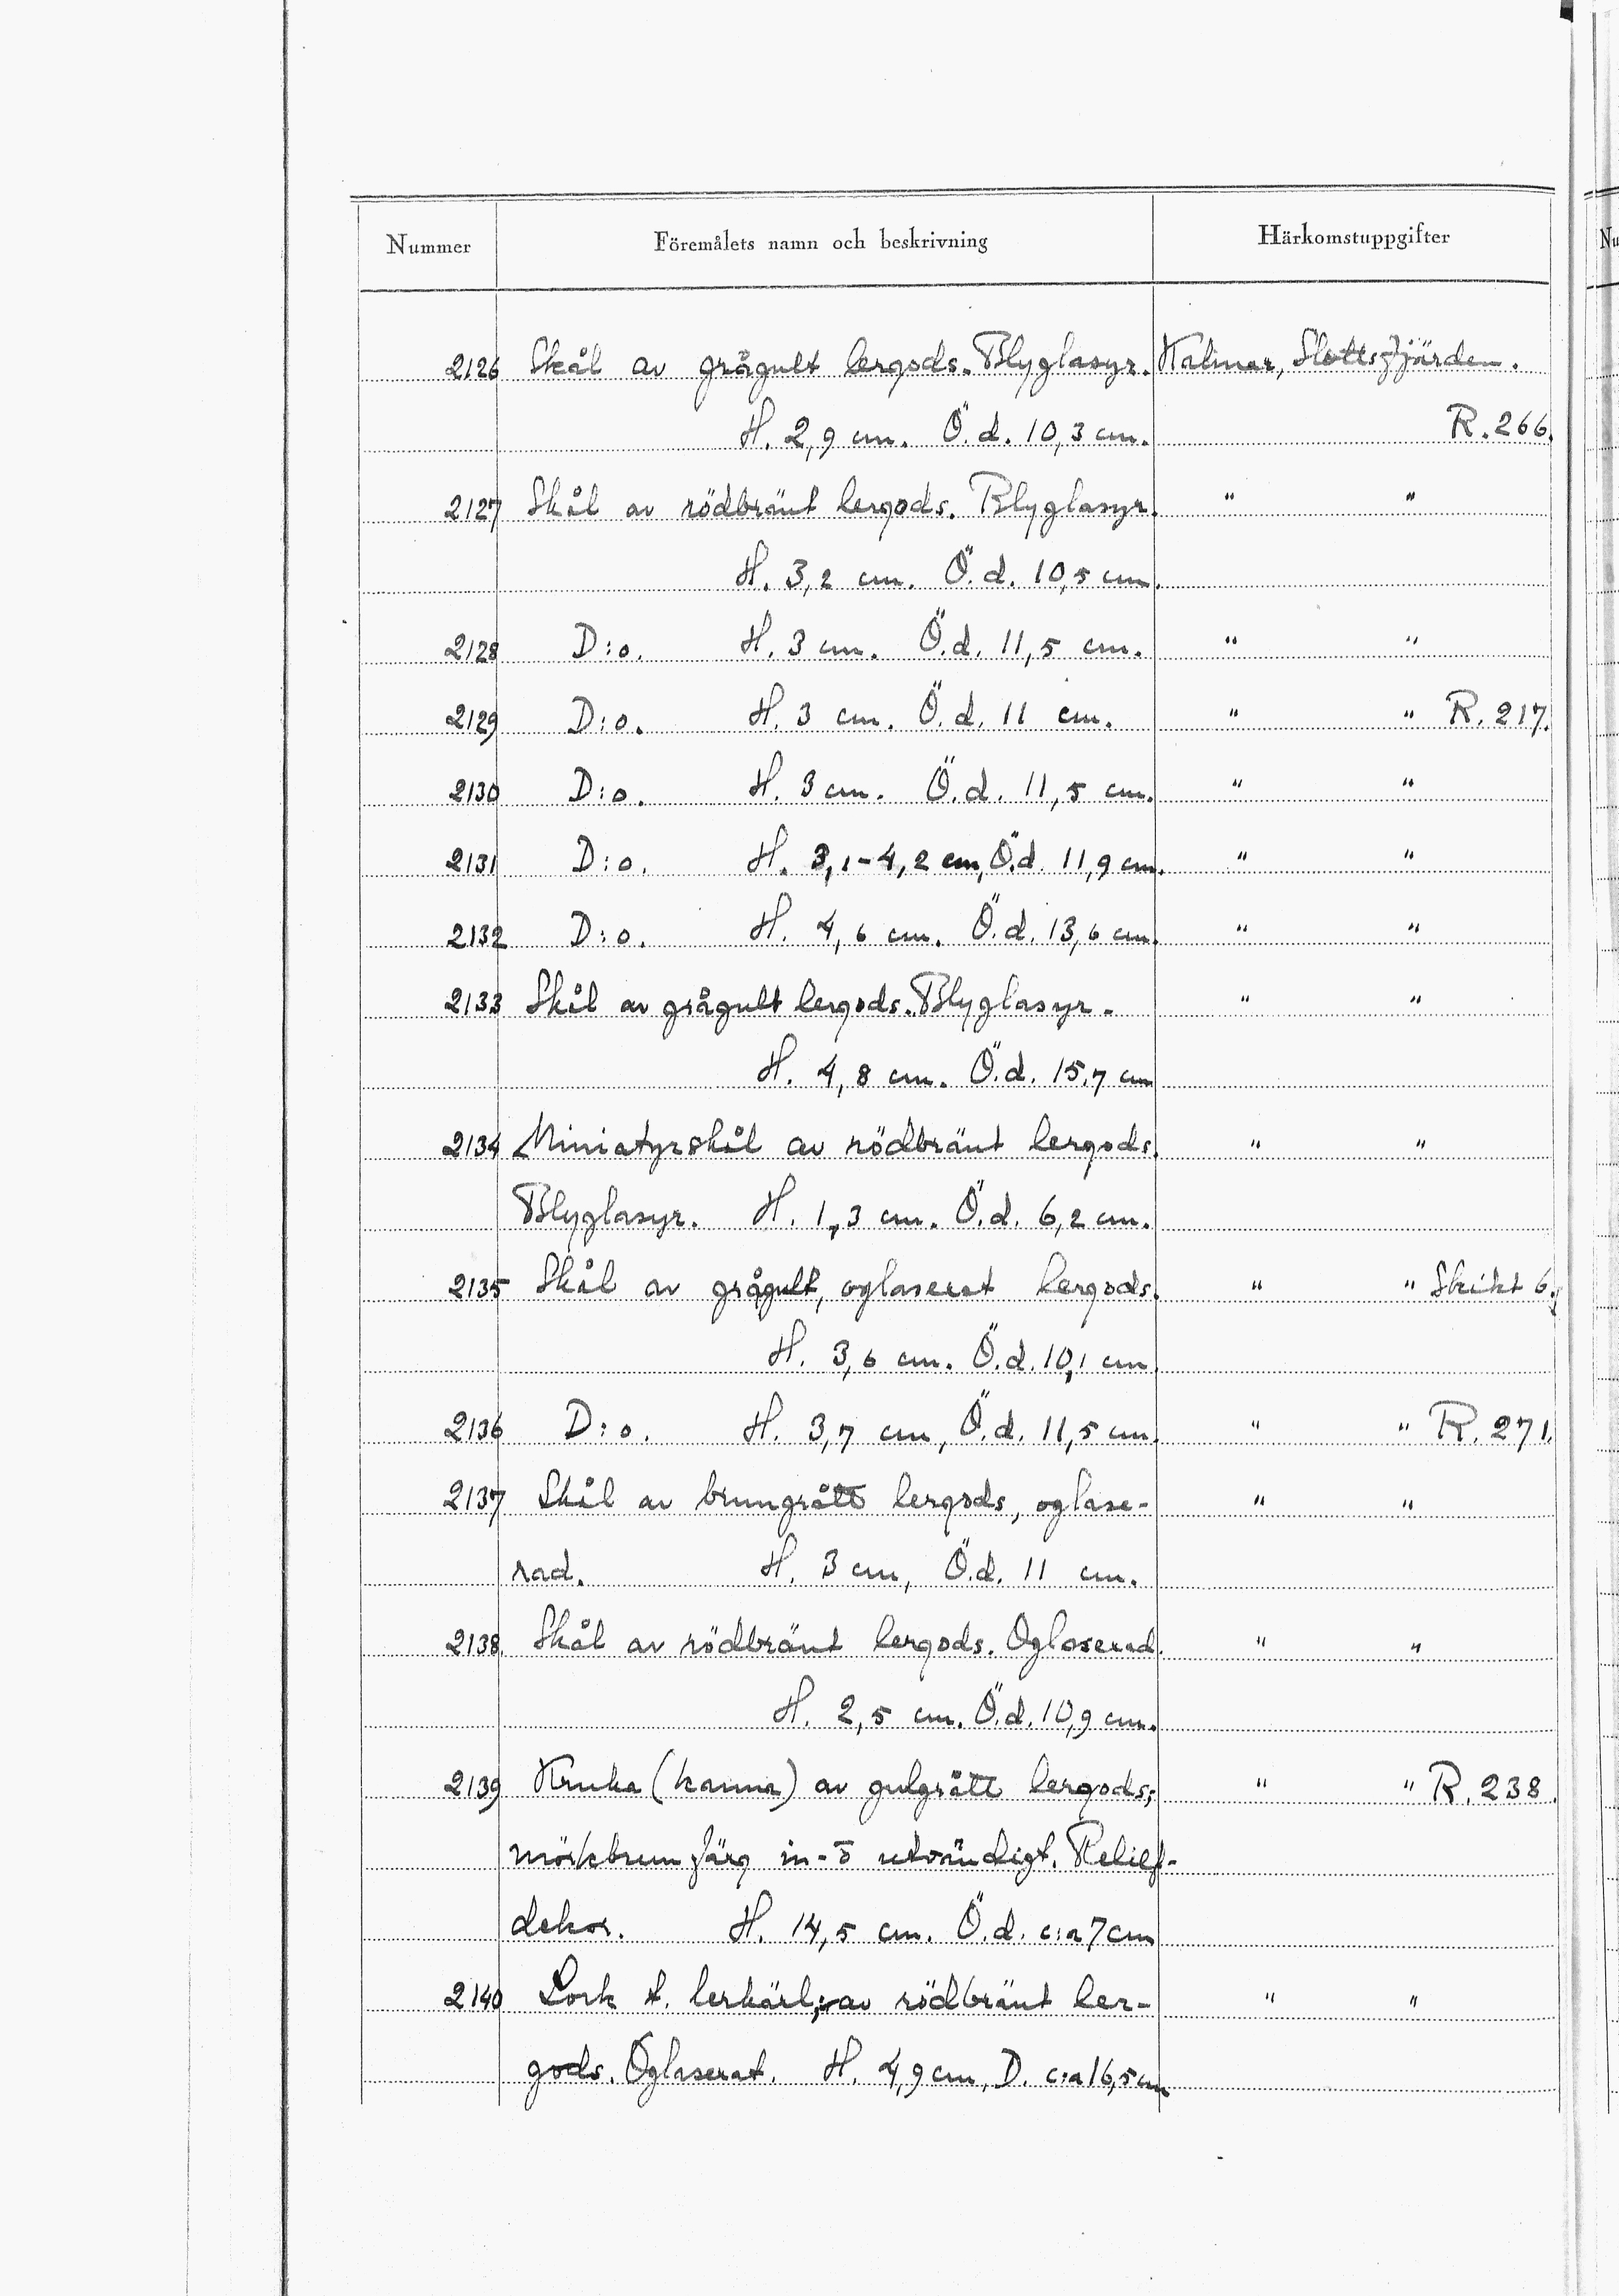 Nummer Föremålets namn och beskrivning Härkomstuppgifter
2126 Skål av grågult lergods. Blyglasyr. Kalmar, Slottsfjärden.
H. 2,9 cm. Ö.d. 10,3 cm. R. 266.
2127 Skål av rödbränt lergods. Blyglasyr. " "
H. 3,2 cm. Ö.d. 10,5 cm.
2128 D:o. H. 3 cm. Ö.d. 11,5 cm. " "
2129 D:o. H. 3 cm. Ö.d. 11 cm. " " R. 217.
2130 D:o. H. 3 cm. Ö.d. 11,5 cm. " "
2131 D:o. H. 3,1-4,2 cm, Ö.d. 11,9 cm. " "
2132 D:o. H. 4,6 cm. Ö.d. 13,6 cm. " "
2133 Skål av grågult lergods. Blyglasyr. " "
H. 4,8 cm. Ö.d. 15,7 cm
2134 Miniatyrskål av rödbränt lergods. " "
Blyglasyr. H. 1,3 cm. Ö.d. 6,2 cm.
2135 Skål av grågult, oglaserat lergods. " " Skikt 6.
H. 3,6 cm. Ö.d. 10,1 cm.
2136 D:o. H. 3,7 cm, Ö.d. 11,5 cm. " " R. 271.
2137 Skål av brungrått lergods, oglase- " "
rad. H. 3 cm, Ö.d. 11 cm.
2138. Skål av rödbränt lergods. Oglaserad. " "
H. 2,5 cm. Ö.d. 10,9 cm.
2139 Kruka (kanna) av gulgrått lergods; " " R. 238.
mörkbrun färg in- o utvändigt. Relief-
dekor. H. 14,5 cm. Ö.d. c:a 7 cm
2140 Lock t. lerkärl, av rödbränt ler- " "
gods. Oglaserat. H. 4,9 cm, D. c:a 16,5 cm